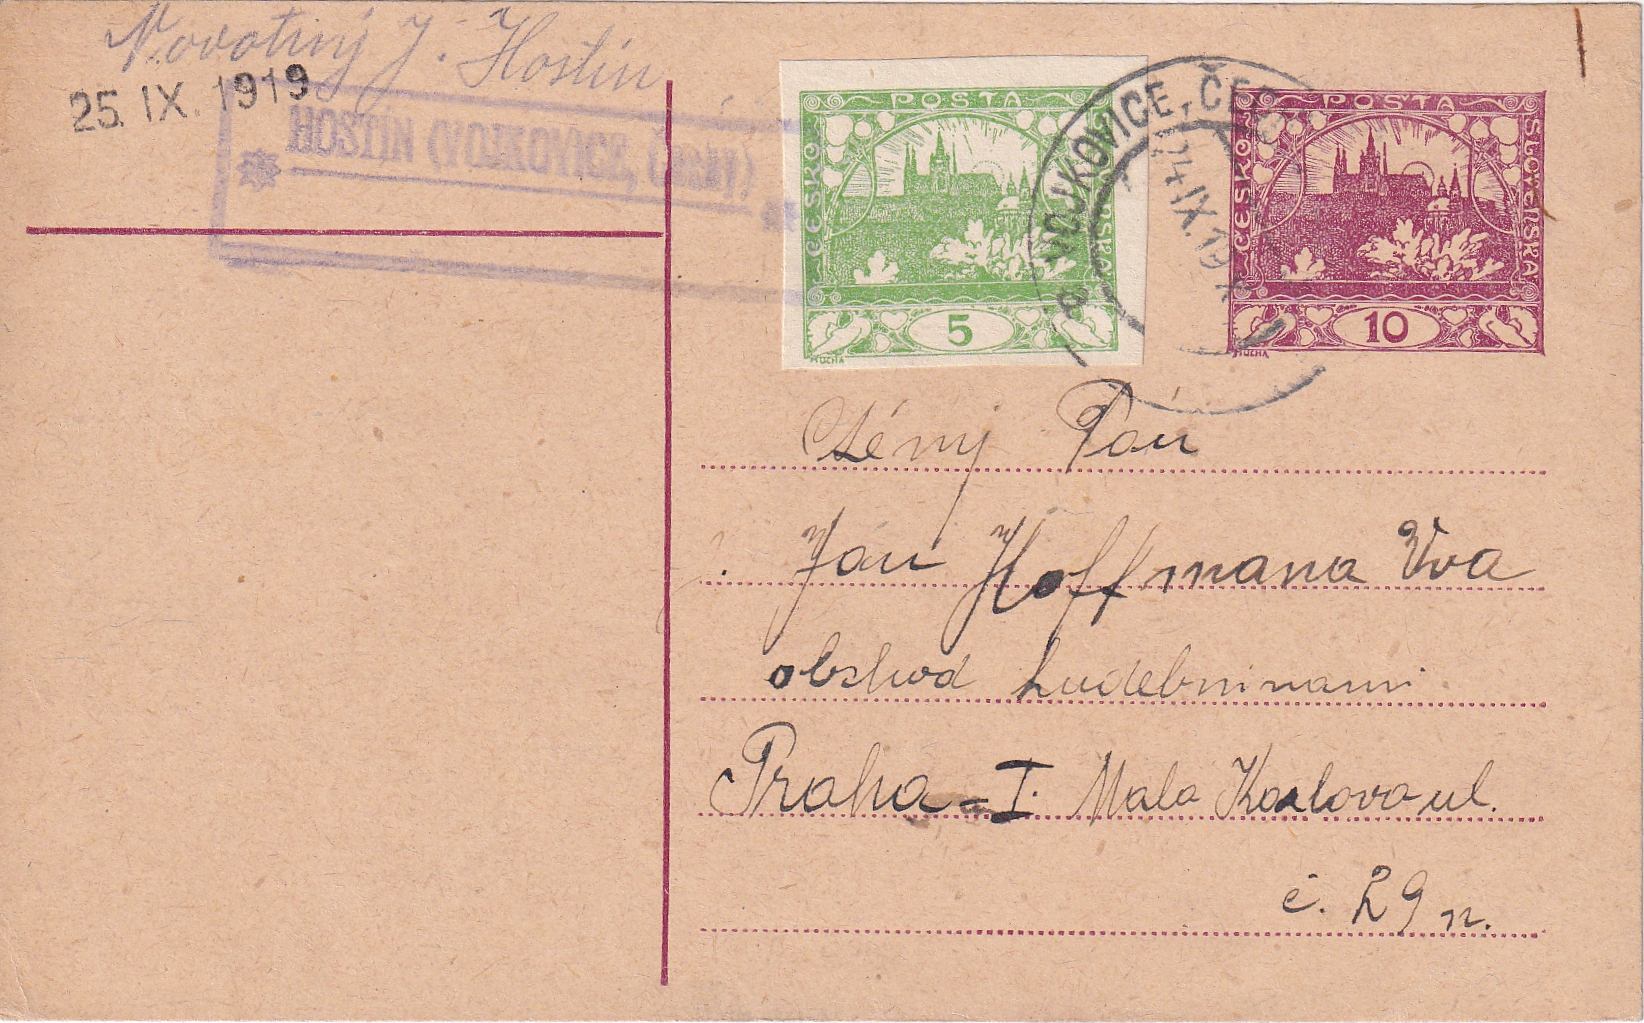 Novotný J. Hostín
25. IX. 1919
HOSTÍN (VOJKOVICE, ČECHY)
POSTA
CESKO
SLOVENSKA
5
MUCHA
VOJKOVICE, ČECHY
24 IX. 19
POSTA
CESKO
SLOVENSKA
10
MUCHA
Ctěný Pán
Ján Hoffmana Vva
obchod hudebninami
Praha - I. Mala Karlova ul.
č. 29 n.